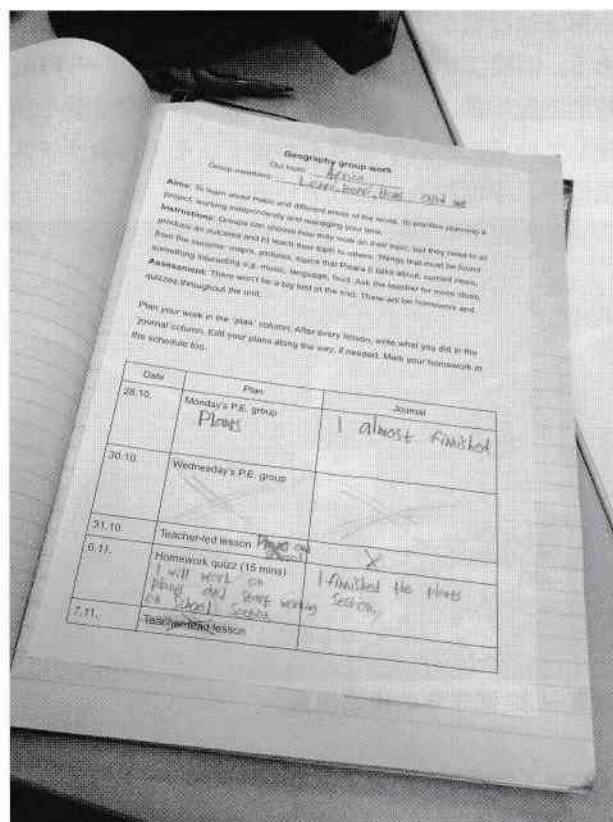 Geography group work
Our topic: Africa
Group members: and me
Aims: To learn about maps and different areas of the world. To practise planning a
project, working independently and managing your time.
Instructions: Groups can choose how they work on their topic, but they need to a)
produce an outcome and b) teach their topic to others. Things that must be found
from the outcome: maps, pictures, topics that talks about, current news,
something interesting e.g. music, language, food. Ask the teacher for more ideas.
Assessment: There won't be a big test at the end. There will be homework and
quizzes throughout the unit.
Plan your work in the 'plan' column. After every lesson, write what you did in the
journal column. Edit your plans along the way, if needed. Mark your homework in
the schedule too.
Date Plan Journal
28.10. Monday's P.E. group
Plants I almost finished
30.10. Wednesday's P.E. group
31.10. Teacher-led lesson Plants and X
6.11. Homework quizz (15 mins)
I will work on I finnished the plants
plants and start working section,
on school section
7.11. Teacher-lead lesson